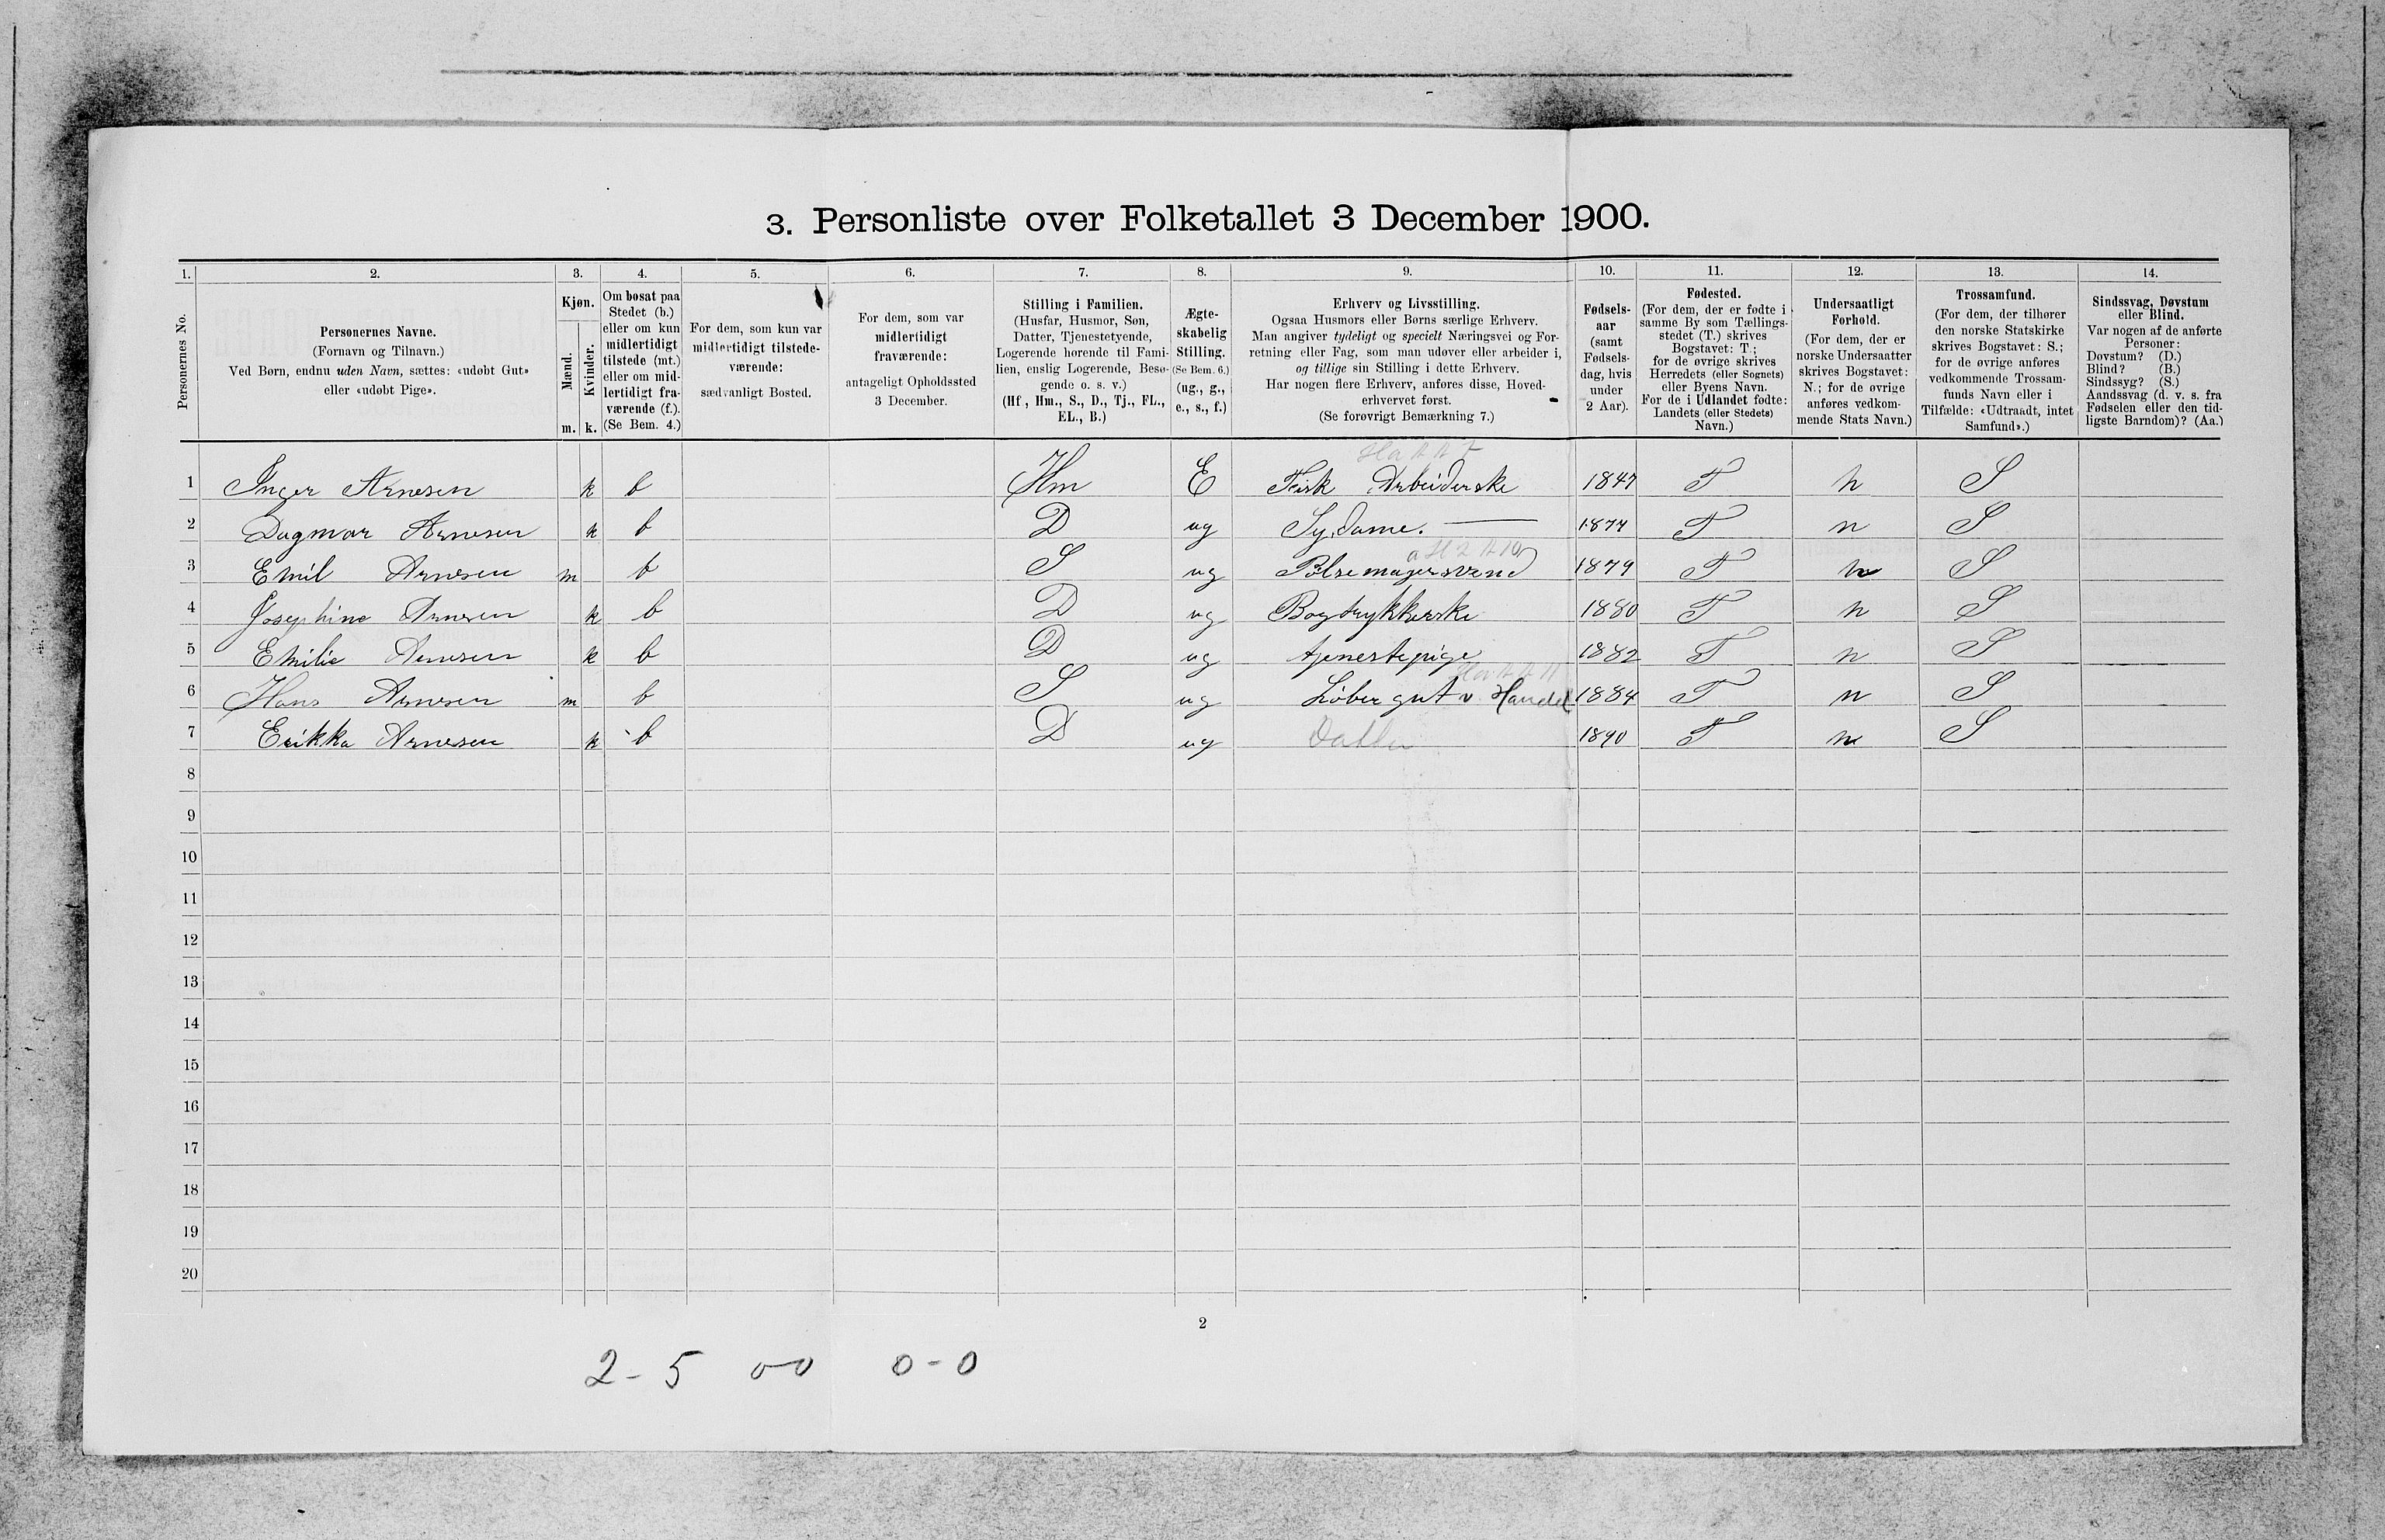 3. Personliste over Folketallet 3 December 1900.
1. 2. 3. 4. 5. 6. 7. 8. 9. 10. 11. 12. 13. 14.
Personernes No.
Personernes Navne.
(Fornavn og Tilnavn.)
Ved Børn, endnu uden Navn, sættes: «udøbt Gut»
eller «udøbt Pige».
Kjøn.
Mænd.
Kvinder.
m. k.
Om bosat paa
Stedet (b.)
eller om kun
midlertidigt
tilstede (mt.)
eller om mid-
lertidigt fra-
værende (f.).
(Se Bem. 4.)
For dem, som kun var
midlertidigt tilstede-
værende:
sædvanligt Bosted.
For dem, som var
midlertidigt
fraværende:
antageligt Opholdssted
3 December.
Stilling i Familien.
(Husfar, Husmor, Søn,
Datter, Tjenestetyende,
Logerende hørende til Fami-
lien, enslig Logerende, Besø-
gende o. s. v.)
(Hf., Hm., S., D., Tj., FL.,
EL., B.)
Ægte-
skabelig
Stilling.
(Se Bem. 6.)
(ug., g.,
e., s., f.)
Erhverv og Livsstilling.
Ogsaa Husmors eller Børns særlige Erhverv.
Man angiver tydeligt og specielt Næringsvei og For-
retning eller Fag, som man udøver eller arbeider i,
og tillige sin Stilling i dette Erhverv.
Har nogen flere Erhverv, anføres disse, Hoved-
erhvervet først.
(Se forøvrigt Bemærkning 7.)
Fødsels-
aar
(samt
Fødsels-
dag, hvis
under
2 Aar).
Fødested.
(For dem, der er fødte i
samme By som Tællings-
stedet (T.) skrives
Bogstavet: T.;
for de øvrige skrives
Herredets (eller Sognets)
eller Byens Navn.
For de i Udlandet fødte:
Landets (eller Stedets)
Navn.)
Undersaatligt
Forhold.
(For dem, der er
norske Undersaatter
skrives Bogstavet:
N.; for de øvrige
anføres vedkom-
mende Stats Navn.)
Trossamfund.
(For dem, der tilhører
den norske Statskirke
skrives Bogstavet: S.;
for de øvrige anføres
vedkommende Trossam-
funds Navn eller i
Tilfælde: «Udtraadt, intet
Samfund».)
Sindssvag, Døvstum
eller Blind.
Var nogen af de anførte
Personer:
Døvstum? (D.)
Blind? (B.)
Sindssyg? (S.)
Aandssvag (d. v. s. fra
Fødselen eller den tid-
ligste Barndom)? (Aa.)
1 Inger Arnesen k b Hm E Fisk Arbeiderske 1847 T n S
2 Dagmar Arnesen k b D ug Sydame. 1877 T n S
3 Emil Arnesen m b S ug Pølsemagersvend 1879 T n S
4 Josephine Arnesen k b D ug Bogtrykkerske 1880 T n S
5 Emilie Arnesen k b D ug tjenestepige 1882 T n S
6 Hans Arnesen m b S ug Løbergut v Handel 1884 T n S
7 Erikka Arnesen k b D ug Datter 1890 T n S
8
9
10
11
12
13
14
15
16
17
18
19
20
2
2-5 0-0 0-0